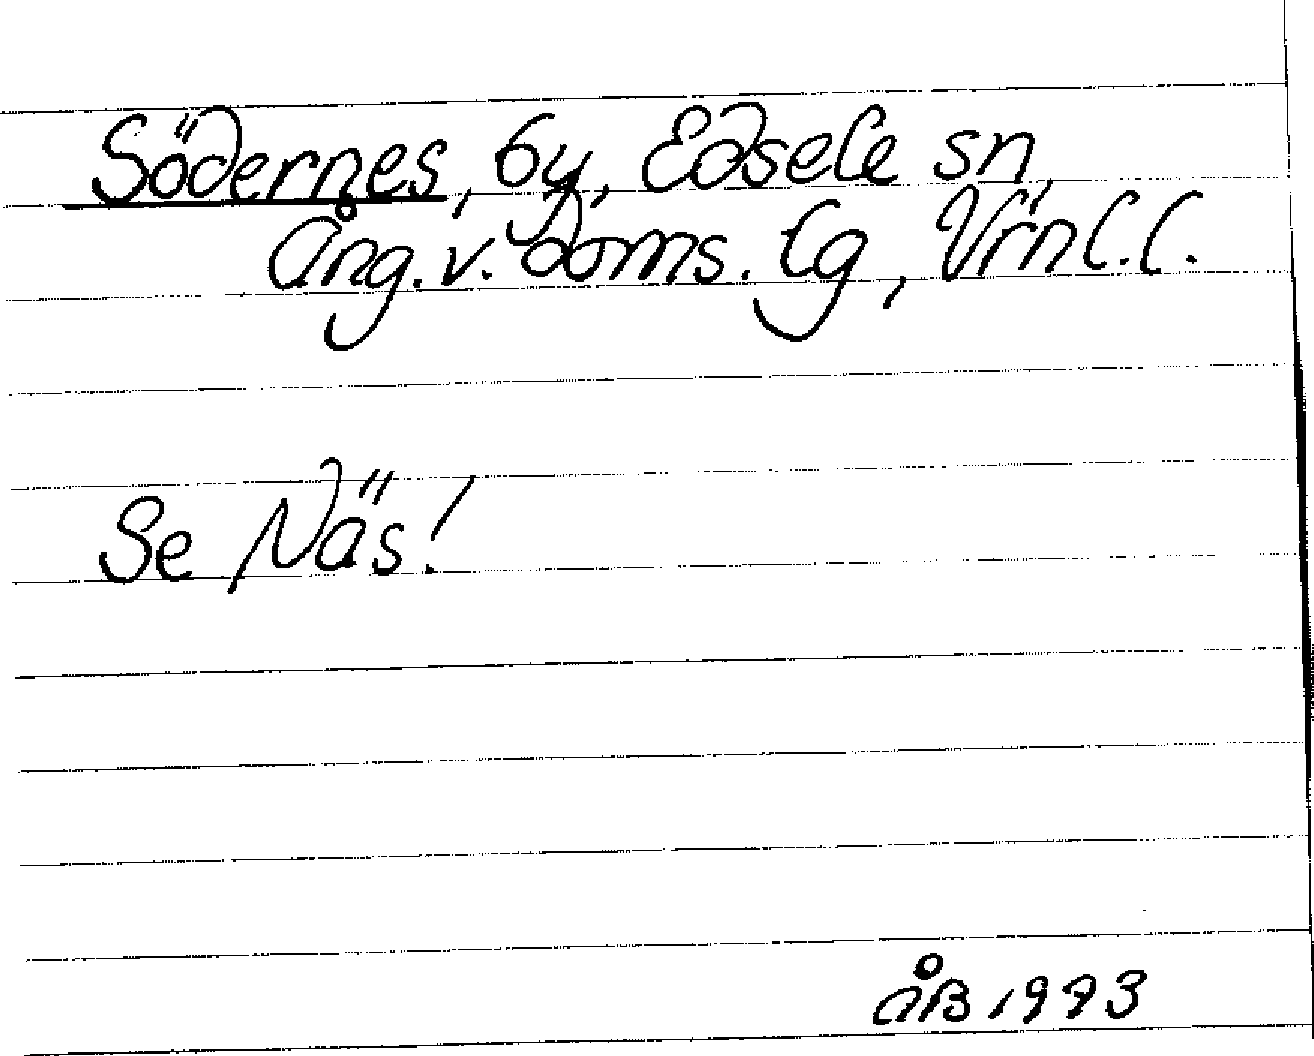 Södernes, by, Edsele sn,
Ång. v. doms. lg, Vrnl.l.
Se Näs!
ÅB 1993